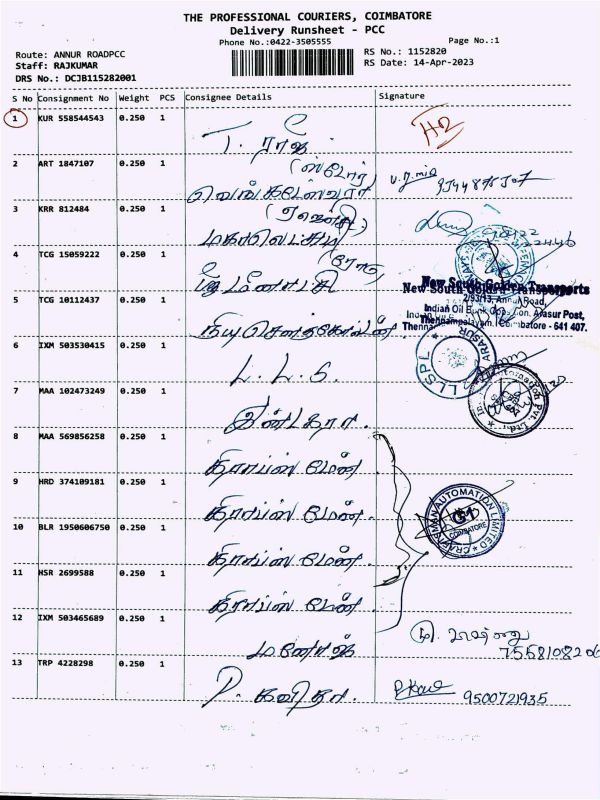 THE PROFESSIONAL COURIERS, COIMBATORE
Delivery Runsheet - PCC
Phone No.:0422-3505555
Page No.:1
Route: ANNUR ROADPCC
Staff: RAJKUMAR
DRS No.: DCJB115282001
RS No.: 1152820
RS Date: 14-Apr-2023
S No Consignment No Weight PCS Consignee Details Signature
1 KUR 558544543 0.250 1
T. ராஜ்
2 ART 1847107 0.250 1
(ஸ்டோர்)
வெங்கடேஸ்வரா
3 KRR 812484 0.250 1
(ஏஜென்சி)
மகாலெட்சுமி
4 TCG 15059222 0.250 1
(ரோடு)
மீனாட்சி
New South Golden Transports
2/93/13, Annur Road,
Indian Oil Bunk Opp., Arasur Post,
Thennampalayam, Coimbatore - 641 407.
5 TCG 10112437 0.250 1
நியு சௌத்கோல்டன்
6 IXM 503530415 0.250 1
L. L. S.
LLSPL
ARASUR
7 MAA 102473249 0.250 1
8 MAA 569856258 0.250 1
கிராப்ஸ் மேன்.
9 HRD 374109181 0.250 1
கிராப்ஸ் மேன்.
CRAFTSMAN AUTOMATION LIMITED
G1
COIMBATORE
10 BLR 1950606750 0.250 1
கிராப்ஸ் மேன்.
11 HSR 2699588 0.250 1
கிராப்ஸ் மேன்.
12 IXM 503465689 0.250 1
மனோஜ்
7558108206
13 TRP 4228298 0.250 1
P. கவிதா.
9500721935